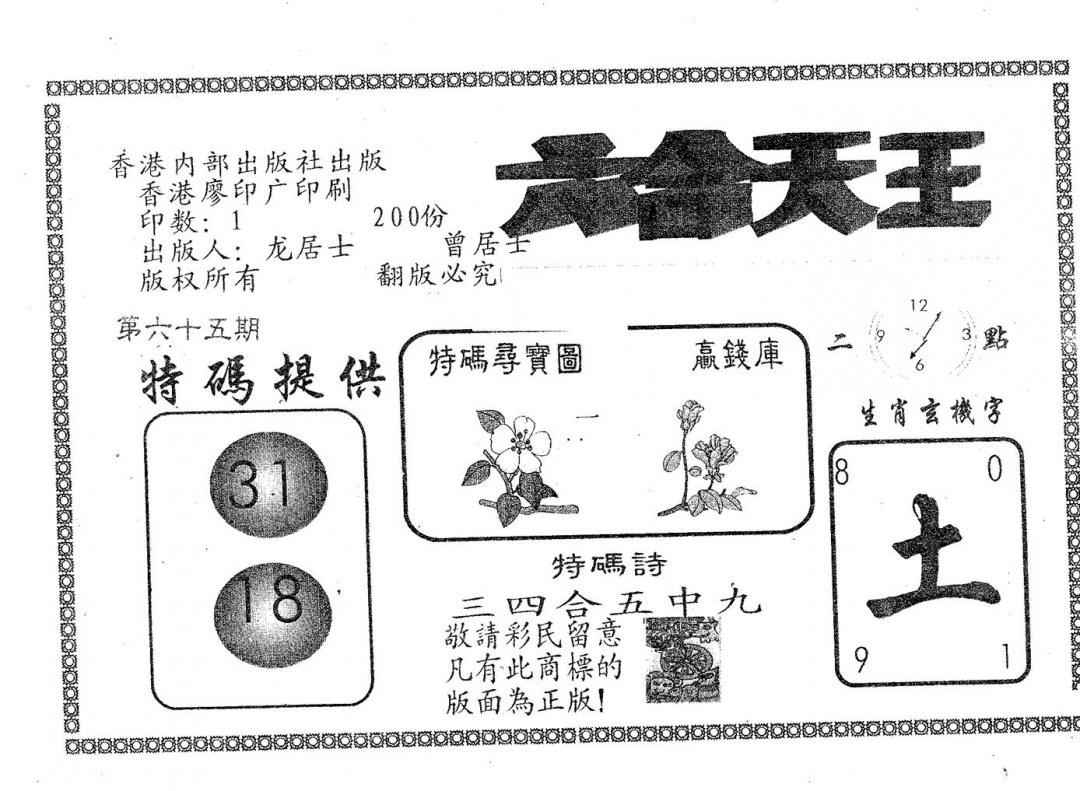 六合天王
香港内部出版社出版
香港廖印广印刷
印数：1 200份
出版人：龙居士 曾居士
版权所有 翻版必究
第六十五期
特碼提供
31
18
特碼尋寶圖 贏錢庫
一
二 12 3 6 9 點
生肖玄機字
8 0
土
9 1
特碼詩
三四合五中九
敬請彩民留意
凡有此商標的
版面為正版!